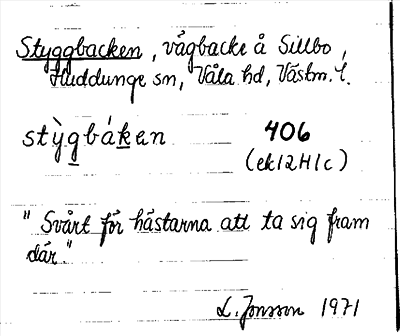 Styggbacken, vägbacke å Sillbo,
Huddunge sn, Våla hd, Västm. l.
stỳgbáken 406
(ek12H1c)
"Svårt för hästarna att ta sig fram
där."
L. Jonsson 1971